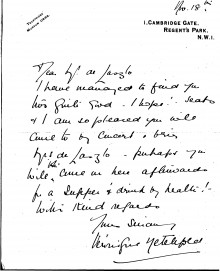 Nov. 18th
1, CAMBRIDGE GATE,
REGENT'S PARK,
N.W.1.
TELEPHONE
Dear Mr de Laszlo
I have managed to find you
two Guild Good. I hope! - seats
& I am so pleased you will
come to my concert & bring
Mrs de Laszlo - perhaps you
will come in here afterwards
for a supper & drink my health!-
With kind regards
Yours Sincerely